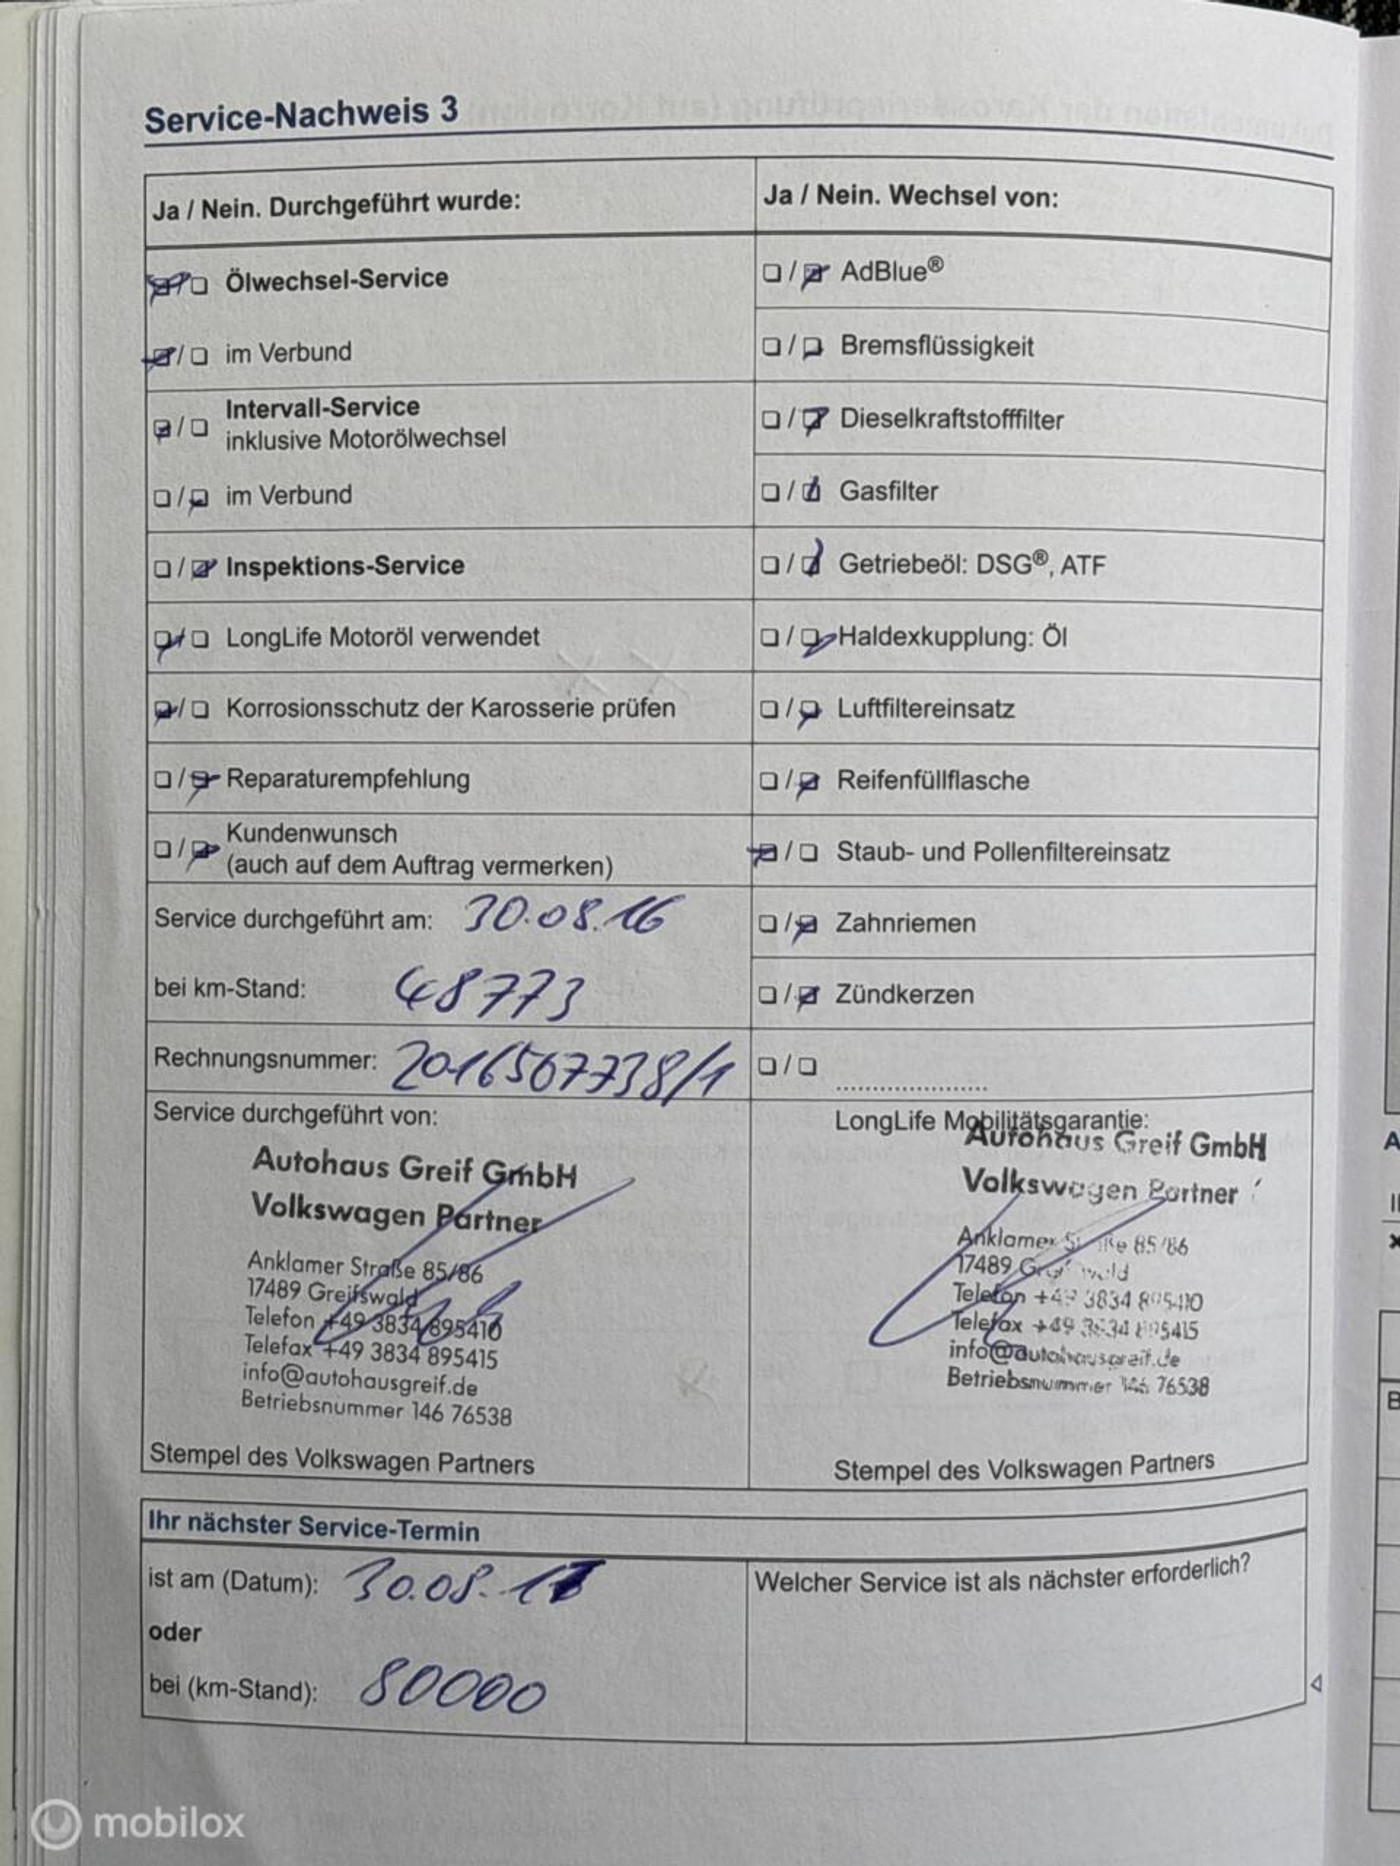 Service-Nachweis 3
Ja / Nein. Durchgeführt wurde:
Ölwechsel-Service
im Verbund
Intervall-Service
inklusive Motorölwechsel
im Verbund
Inspektions-Service
LongLife Motoröl verwendet
Korrosionsschutz der Karosserie prüfen
Reparaturempfehlung
Kundenwunsch
(auch auf dem Auftrag vermerken)
Service durchgeführt am: 30.08.16
bei km-Stand: 48773
Rechnungsnummer: 2016567738/1
Ja / Nein. Wechsel von:
AdBlue®
Bremsflüssigkeit
Dieselkraftstofffilter
Gasfilter
Getriebeöl: DSG®, ATF
Haldexkupplung: Öl
Luftfiltereinsatz
Reifenfüllflasche
Staub- und Pollenfiltereinsatz
Zahnriemen
Zündkerzen
Service durchgeführt von:
Autohaus Greif GmbH
Volkswagen Partner
Anklamer Straße 85/86
17489 Greifswald
Telefon +49 3834 895410
Telefax +49 3834 895415
info@autohausgreif.de
Betriebsnummer 146 76538
Stempel des Volkswagen Partners
LongLife Mobilitätsgarantie:
Autohaus Greif GmbH
Volkswagen Partner
Anklamer Straße 85/86
17489 Greifswald
Telefon +49 3834 895410
Telefax +49 3834 895415
info@autohausgreif.de
Betriebsnummer 146 76538
Stempel des Volkswagen Partners
Ihr nächster Service-Termin
ist am (Datum): 30.08.17
oder
bei (km-Stand): 80000
Welcher Service ist als nächster erforderlich?
mobilox